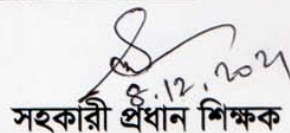 8.12.2021
সহকারী প্রধান শিক্ষক